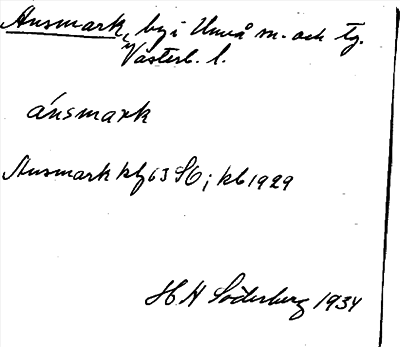 Ansmark, by i Umeå sn. och tg.
Västerb. l.
ánsmark
Ansmark kbl 63 SO; kb 1929
H H Söderberg 1934